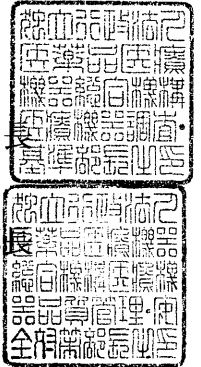 独立行政法人
医薬品医療
機器総合機構
医療機器調査・
基準部長之印
長
独立行政法人
医薬品医療機器
総合機構医療機
器品質管理・安
全対策部長之印
長